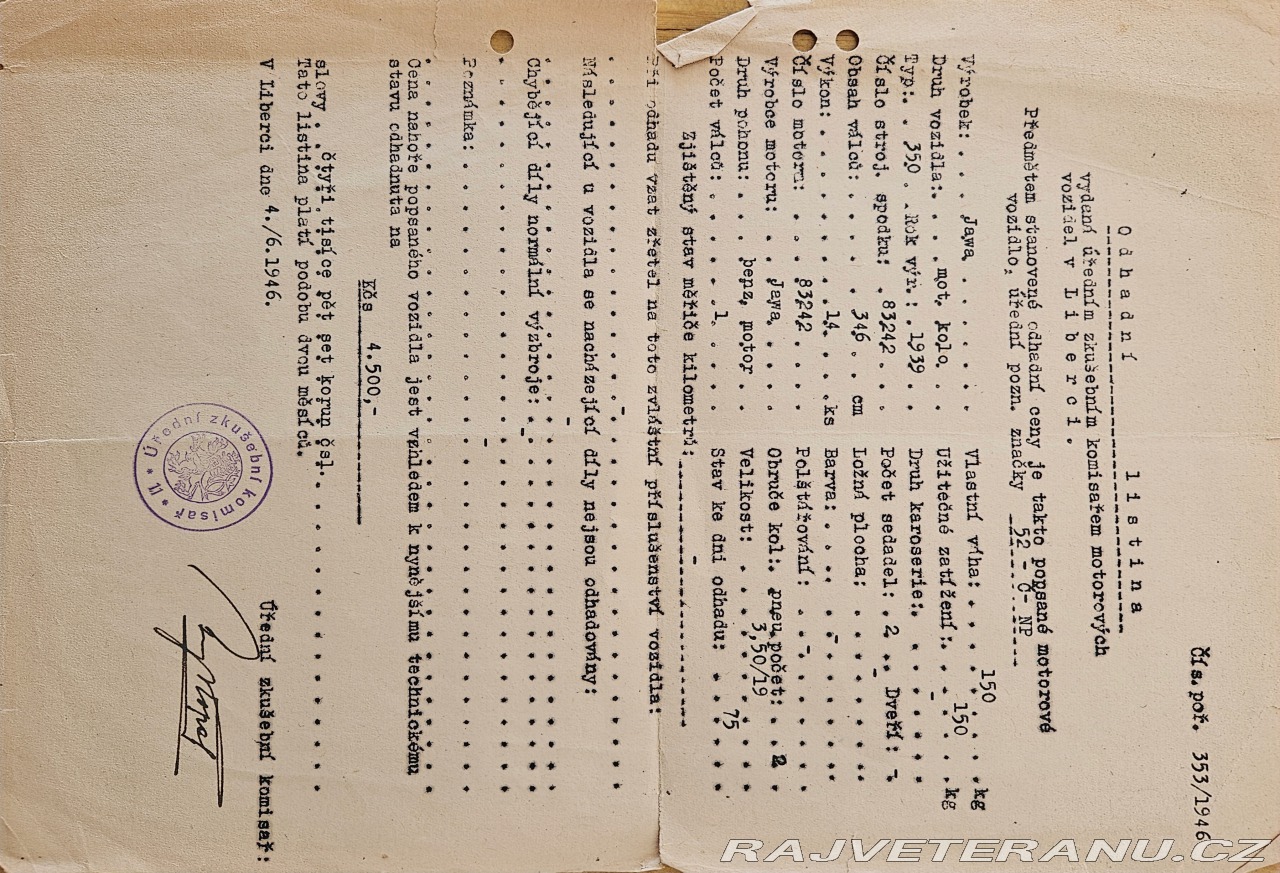 Čís.poř. 353/1946
Odhadní listina
vydaná úředním zkušebním komisařem motorových
vozidel v Liberci.
Předmětem stanovené odhadní ceny je takto popsané motorové
vozidlo, úřední pozn. značky 52 - C- NP
Výrobek:. . . Jawa . . . . . Vlastní váha: . . . 150 . . . kg
Druh vozidla:. . . mot. kolo. . Užitečné zatížení:. . 150 . . kg
Typ:. . 350 . . Rok výr.: . 1939 . Druh karoserie:. . - . . . .
Číslo stroj. spodku: . 83242 . . Počet sedadel: . 2 . . Dveří: . -
Obsah válců: . . . . 346 . . cm Ložná plocha: . . - . . . .
Výkon: . . . . . . 14 . . . ks Barva: . . . - . . . . . .
Číslo motoru: . . . 83242 . . . Polštářování: . . - . . . .
Výrobce motoru: . . Jawa. . . . Obruče kol:. pneu,počet: . . 2
Druh pohonu: . . benz. motor . Velikost: . . 3,50/19 . . . .
Počet válců: . . . . 1 . . . . Stav ke dni odhadu: . . 75 . .
Zjištěný stav měřiče kilometrů: -
Při odhadu vzat zřetel na toto zvláštní příslušenství vozidla:
-
Následující u vozidla se nacházející díly nejsou odhadovány:
-
Chybějící díly normální výzbroje: . -
-
Poznámka:
Cena nahoře popsaného vozidla jest vzhledem k nynějšímu technickému
stavu odhadnuta na
Kčs 4.500,-
slovy . . čtyři tisíce pět set korun čsl.
Tato listina platí podobu dvou měsíců.
V Liberci dne 4./6.1946.
Úřední zkušební komisař:
* Úřední zkušební komisař * II
RAJVETERANU.CZ